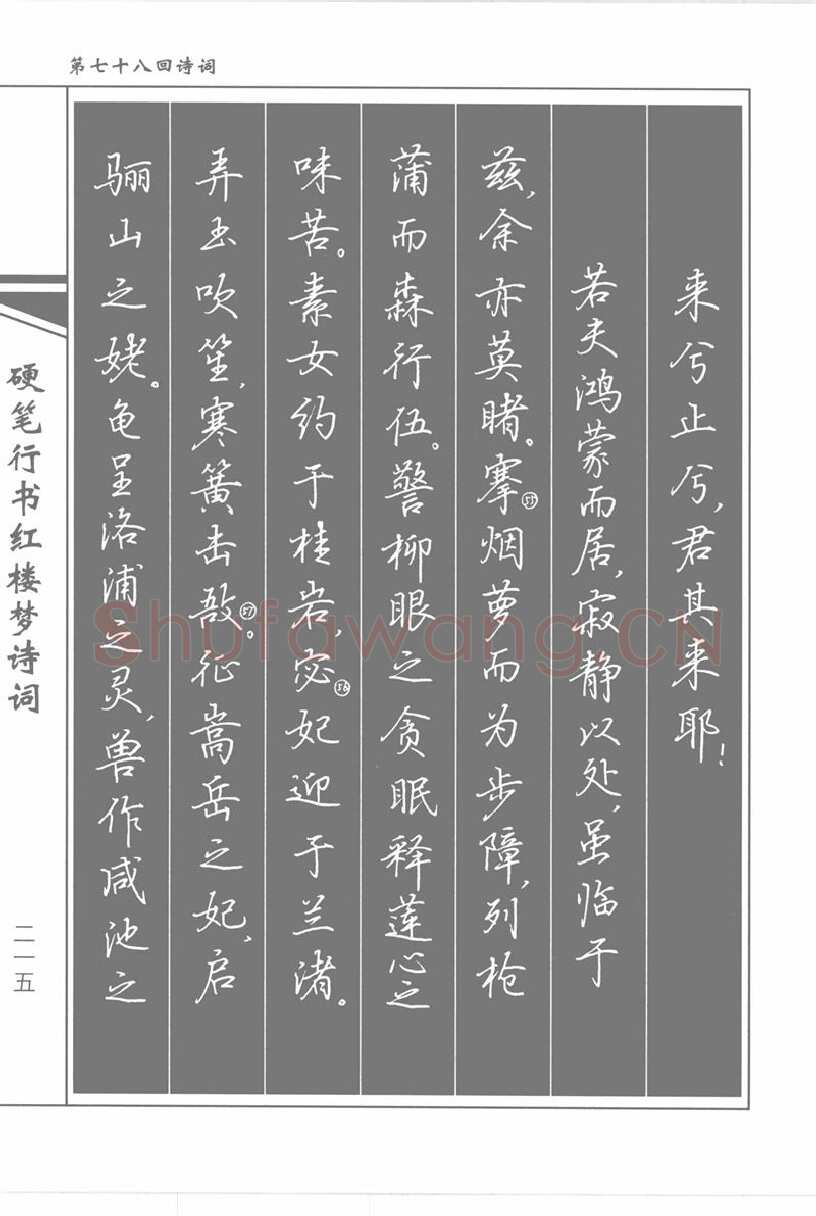 第七十八回诗词
来兮止兮，君其来耶！
若夫鸿蒙而居，寂静以处，虽临于
兹，余亦莫睹。搴㊺烟萝而为步障，列枪
蒲而森行伍。警柳眼之贪眠释莲心之
味苦。素女约于桂岩，宓㊻妃迎于兰渚。
弄玉吹笙，寒簧击敔㊼。征嵩岳之妃，启
骊山之姥。龟呈洛浦之灵，兽作咸池之
硬笔行书红楼梦诗词
二一五
Shufawang.CN